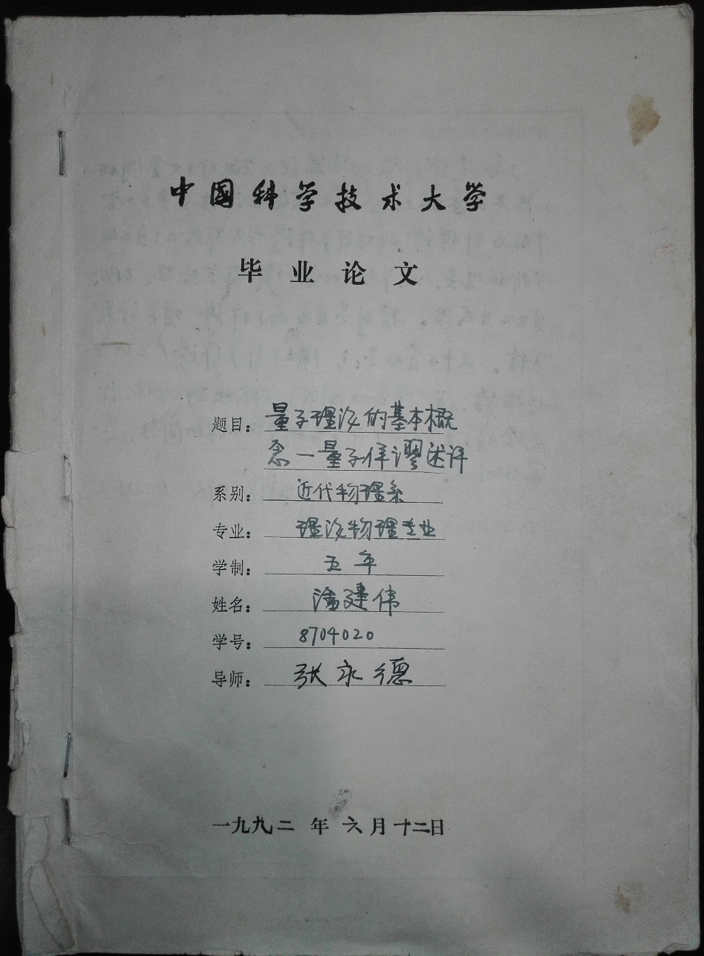 中国科学技术大学
毕业论文
题目：量子理论的基本概
念—量子佯谬述评
系别：近代物理系
专业：理论物理专业
学制：五年
姓名：潘建伟
学号：8704020
导师：张永德
一九九二年六月十二日